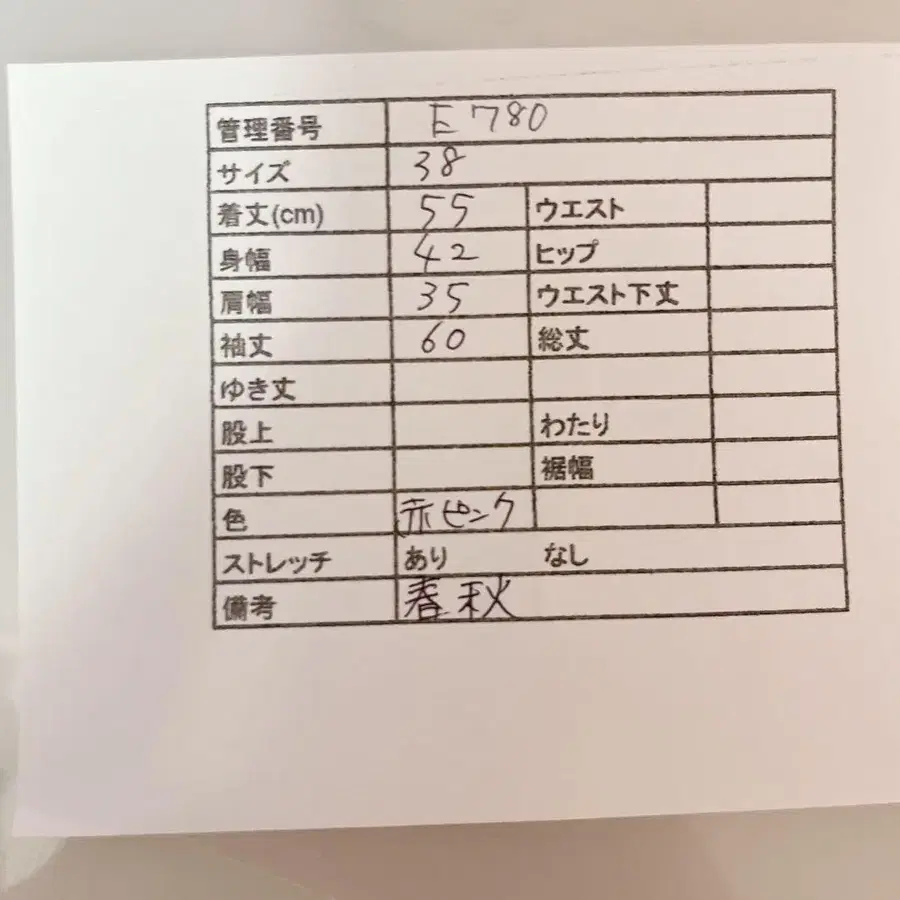 管理番号 E780
サイズ 38
着丈(cm) 55 ウエスト
身幅 42 ヒップ
肩幅 35 ウエスト下丈
袖丈 60 総丈
ゆき丈
股上 わたり
股下 裾幅
色 赤ピンク
ストレッチ あり なし
備考 春秋